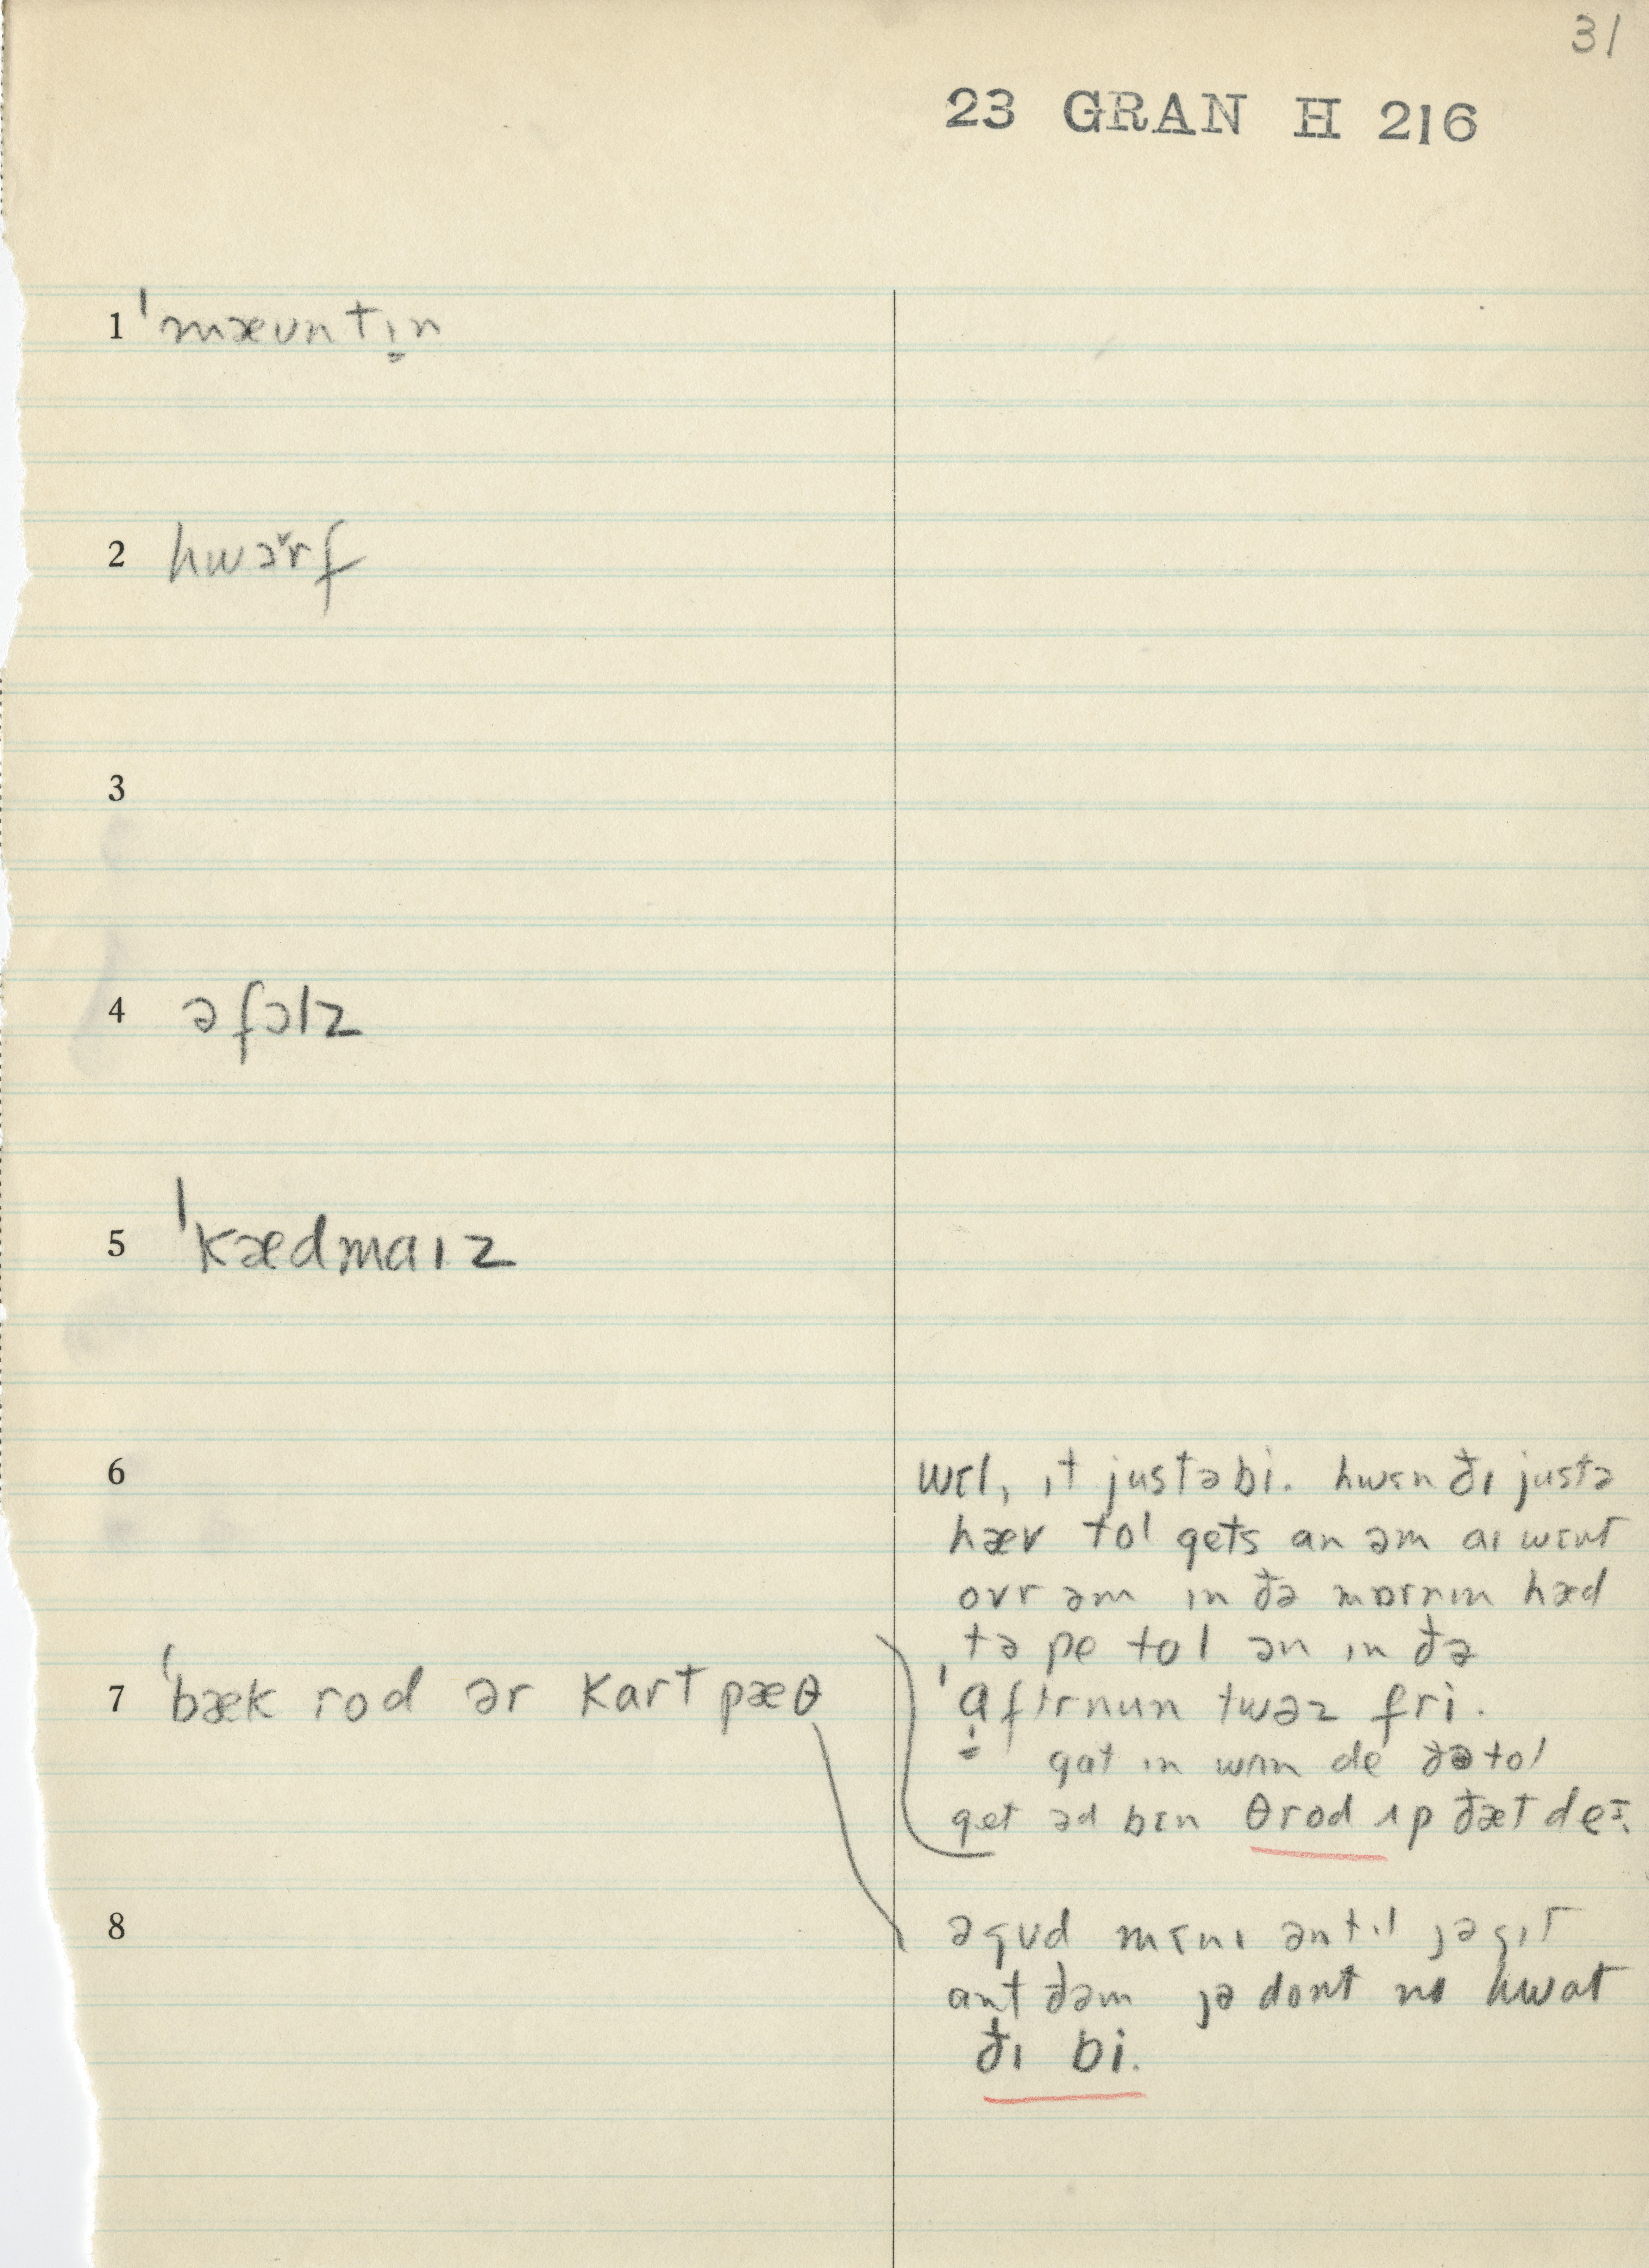 31
23 GRAN H 216
1 ˈmæʊntɪ̱n
2 hwɔ̌rf
3
4 əfɔlz
5 ˈkædmaɪz
6
7 ˈbæk rod ər kart pæθ
8
wɛl, ɪt justəbi. hwɛn ðɪ justə
hæv tol gets an əm aɪ wɛnt
ovr əm ɪn ðə mɒrnɪn hæd
tə pe tol ən ɪn ðə
ˈa̱ftrnun twəz fri.
gat ɪn wʌn de ðə tol
get əd bɛn θrod ʌp ðæt deɪ.
əgʊd mɛnɪ əntɪl jəgɪt
ant ðəm jə dont no hwat
ðɪ bi.